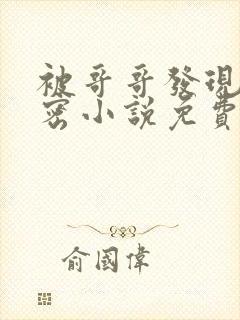 被哥哥發現
密小說免費
俞國偉